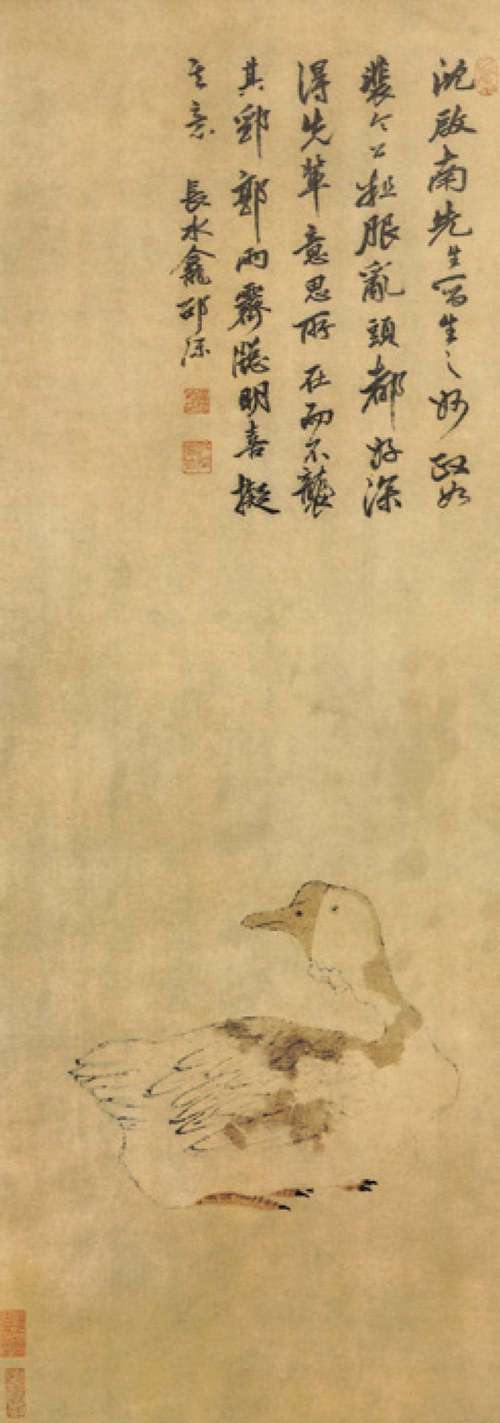 沈啟南先生寫生之妙政如
裴令公粗服亂頭都好深
得先輩意思所在而不襲
其郛郭雨齋聰明喜擬
其意 長水龕邵深